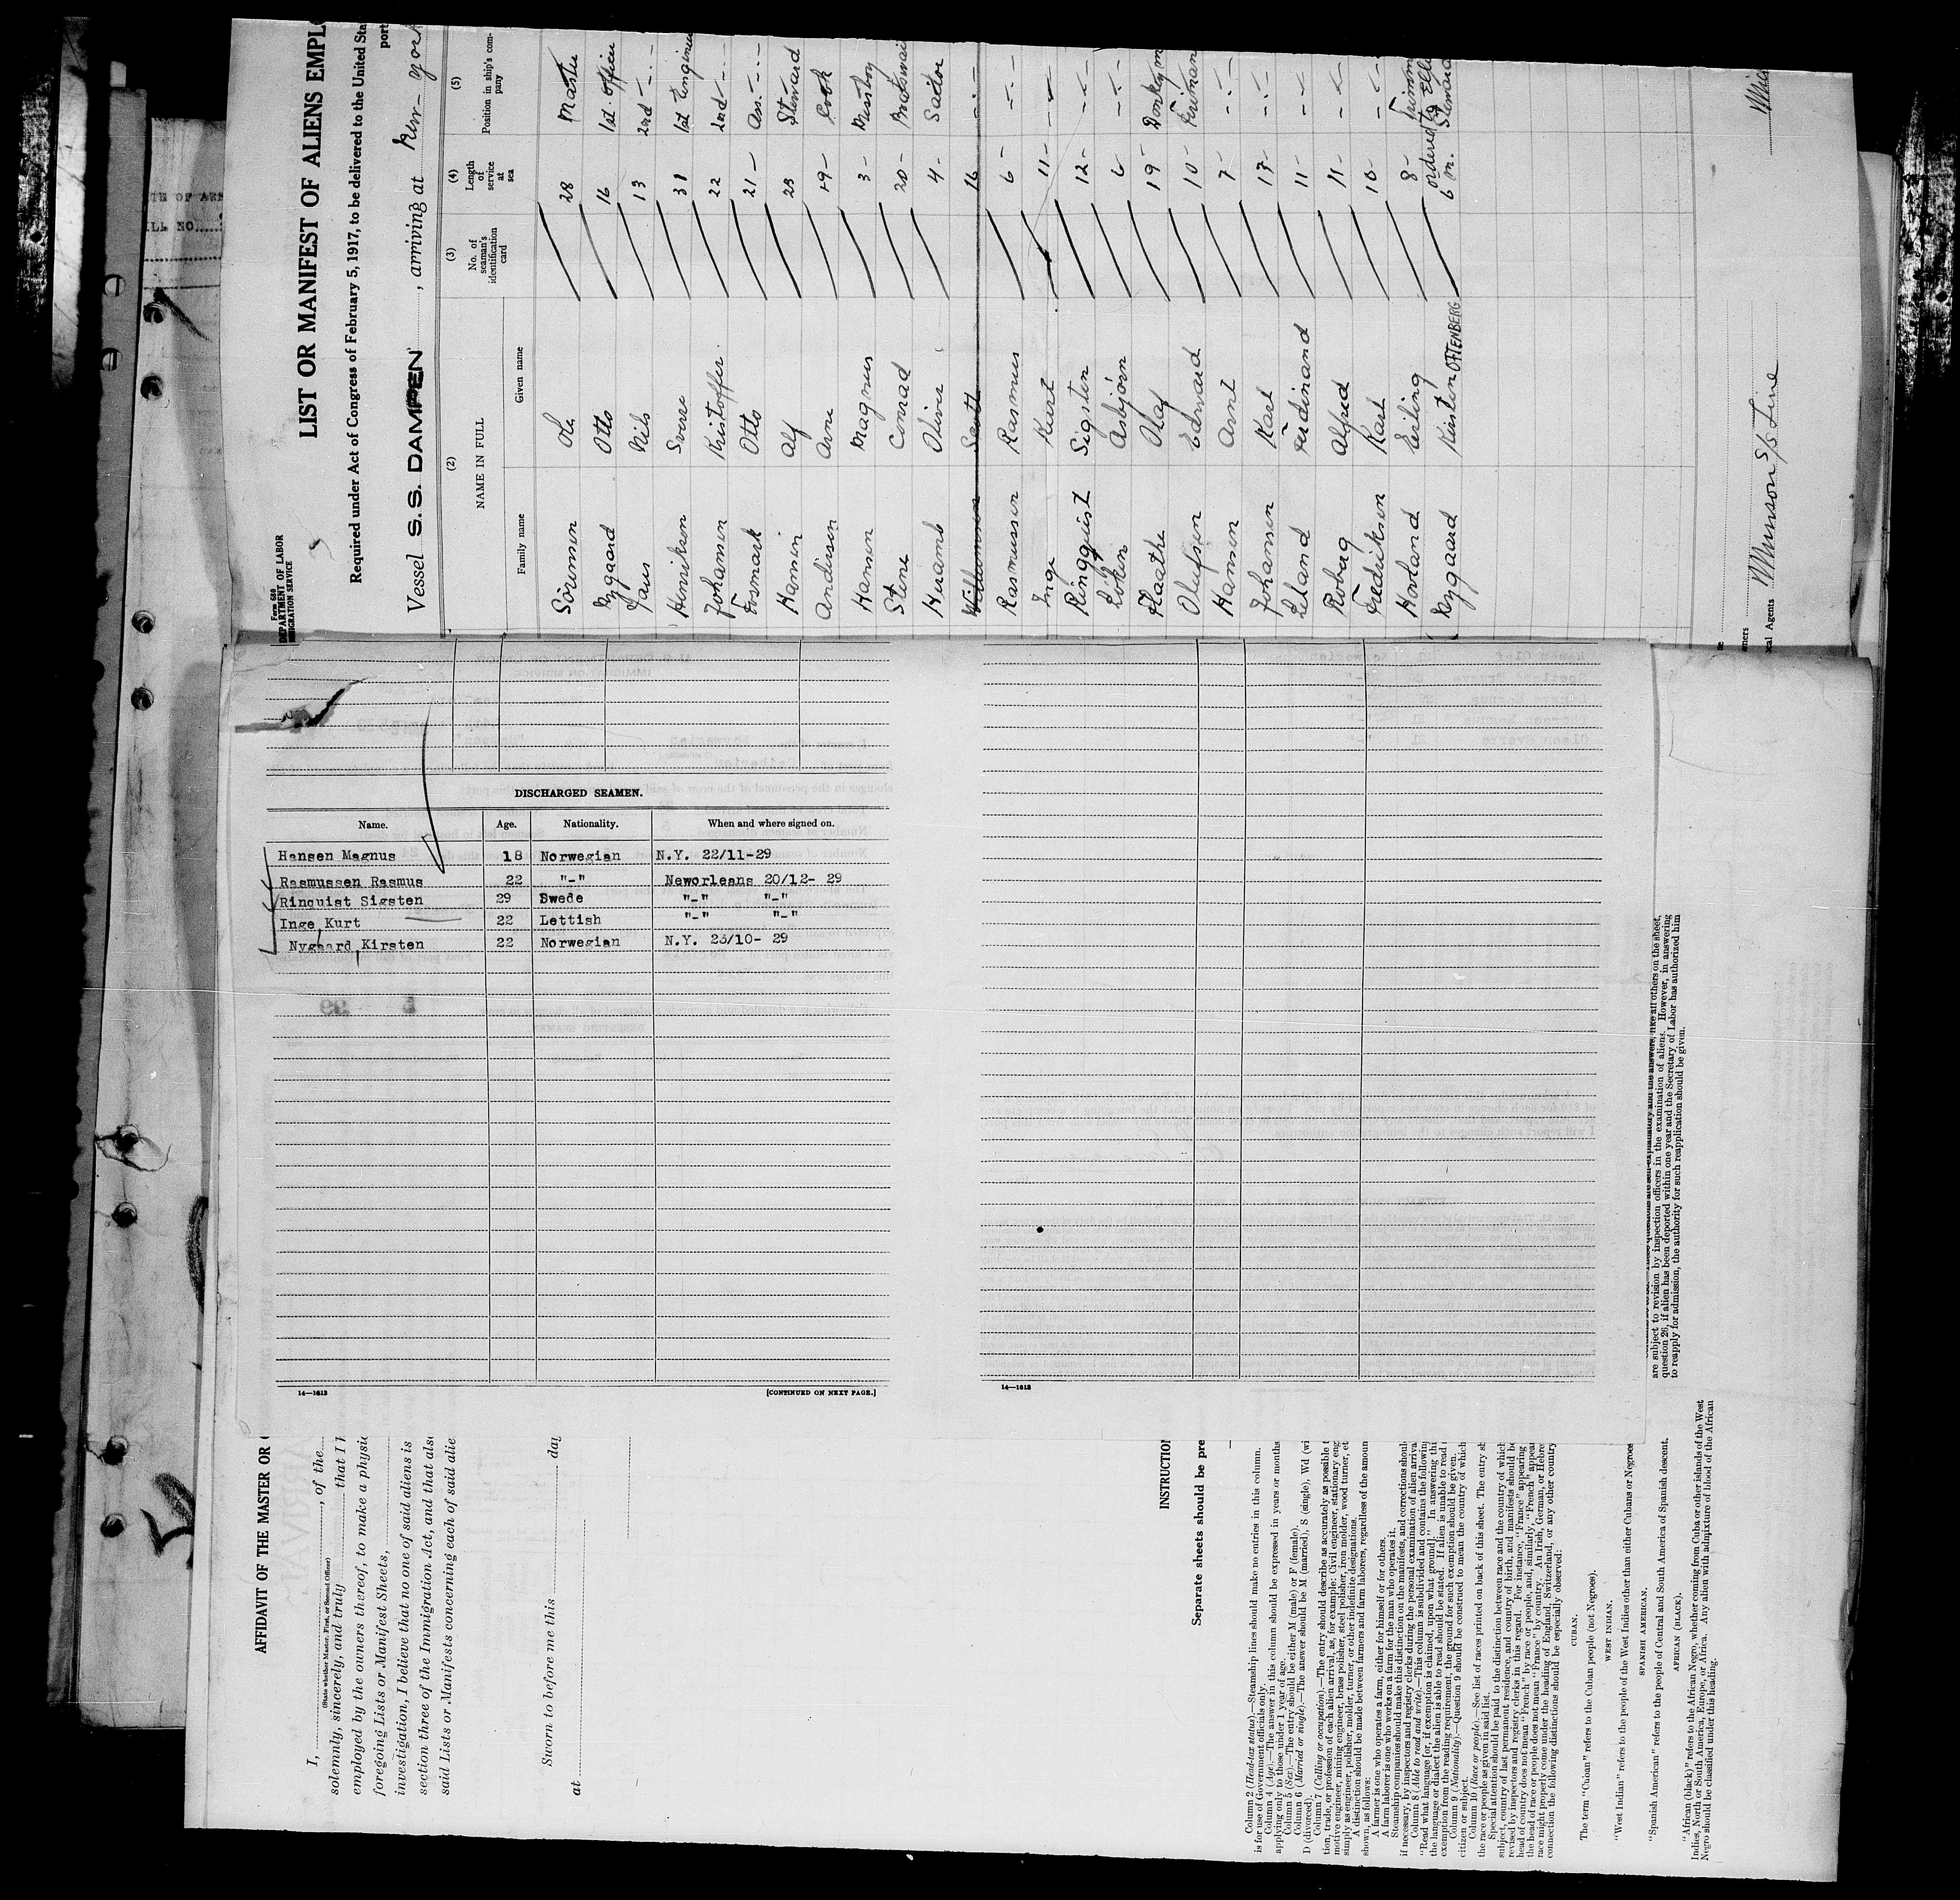 Form 680
DEPARTMENT OF LABOR
IMMIGRATION SERVICE
LIST OR MANIFEST OF ALIENS EMPL
Required under Act of Congress of February 5, 1917, to be delivered to the United Sta
port
Vessel S. S. DAMPEN, arriving at New York
(2) (3) (4) (5)
NAME IN FULL
Family name Given name
No. of seaman's identification card
Length of service at sea
Position in ship's com-pany
Sörensen Ole 28 Master
Nygaard Otto 16 1st officer
Nils 13 2nd -"-
Henriksen Sverre 31 1st Engineer
Johannesen Kristoffer 22 2nd -"-
Fosmark Otto 21 - Ass. -"-
Hansen Alf 23 Steward
Andersen Arne 19 - Cook
Hansen Magnus 3 - Messboy
Stene Conrad 20 - Boatswain
Oliver 4 - Sailor
16 -"-
Rasmussen Rasmus 6 - -"-
Inge Kurt 11 - -"-
Ringquist Sigsten 12 - -"-
Loken Asbjørn 6 -"-
Flaathe Olaf 19 - Donkeym
Olufsen Edward 10 - Fireman
Hansen Arnt 7 - -"-
Johansen Karl 17 - -"-
Leland Ferdinand 11 - -"-
Roberg Alfred 11 - -"-
Fredriksen Karl 10 - -"-
Hovland Erling 8 - Trimm
ordered to Ellis
Nygaard Kirsten OFTENBERG 6 m. Steward
Local Agents Munson S/S Line
DISCHARGED SEAMEN.
Name. Age. Nationality. When and where signed on.
Hansen Magnus 18 Norwegian N.Y. 22/11-29
Rasmussen Rasmus 22 "-" Neworleans 20/12- 29
Rinquist Sigsten 29 Swede "-" "-"
Inge Kurt 22 Lettish "-" "-"
Nygaard Kirsten 22 Norwegian N.Y. 23/10- 29
14—1613 [CONTINUED ON NEXT PAGE.]
14—1613
are subject to revision by inspection officers in the examination of aliens. However, in answering
question 26, if alien has been deported within one year and the Secretary of Labor has authorized him
to reapply for admission, the authority for such reapplication should be given.
AFFIDAVIT OF THE MASTER OR
I, , of the
(State whether Master, First, or Second Officer)
solemnly, sincerely, and truly that I
employed by the owners thereof, to make a physic
foregoing Lists or Manifest Sheets,
investigation, I believe that no one of said aliens is
section three of the Immigration Act, and that also
said Lists or Manifests concerning each of said alie
Sworn to before me this day
at
INSTRUCTION
Separate sheets should be pre
Column 2 (Head-tax status).—Steamship lines should make no entries in this column.
is for use of Government officials only.
Column 4 (Age).—The answer in this column should be expressed in years or months
applying only to those under 1 year of age.
Column 5 (Sex).—The entry should be either M (male) or F (female).
Column 6 (Married or single).—The answer should be M (married), S (single), Wd (wi
D (divorced).
Column 7 (Calling or occupation).—The entry should describe as accurately as possible t
tion, trade, or profession of each alien arrival, as, for example: Civil engineer, stationary eng
motive engineer, mining engineer, brass polisher, steel polisher, iron molder, wood turner, et
simply as engineer, polisher, molder, turner, or other indefinite designations.
A distinction should be made between farmers and farm laborers, regardless of the amoun
shown, as follows:
A farmer is one who operates a farm, either for himself or for others.
A farm laborer is one who works on a farm for the man who operates it.
Steamship companies should make this distinction on the manifests, and corrections shoul
if necessary, by inspectors and registry clerks during the personal examination of alien arriva
Column 8 (Able to read and write).—This column is subdivided and contains the following
"Read what language [or, if exemption is claimed, upon what ground]." In answering thi
the language or dialect the alien is able to read should be stated. If alien is unable to read
exemption from the reading requirement, the ground for such exemption should be given.
Column 9 (Nationality).—Question 9 should be construed to mean the country of which
citizen or subject.
Column 10 (Race or people).—See list of races printed on back of this sheet. The entry sh
the race or people as given in said list.
Special attention should be paid to the distinction between race and the country of which
subject, country of last permanent residence, and country of birth, and manifests should be
revised by inspectors and registry clerks in this regard. For instance, "France" appearing
head of country does not mean "French" by race or people, and, similarly, "French" appear
the head of race or people does not mean "France" by country. An Irish, German, or Hebre
race might properly come under the heading of England, Switzerland, or any other country
connection the following distinctions should be especially observed:
CUBAN.
The term "Cuban" refers to the Cuban people (not Negroes).
WEST INDIAN.
"West Indian" refers to the people of the West Indies other than either Cubans or Negroes
SPANISH AMERICAN.
"Spanish American" refers to the people of Central and South America of Spanish descent.
AFRICAN (BLACK).
"African (black)" refers to the African Negro, whether coming from Cuba or other islands of the West
Indies, North or South America, Europe, or Africa. Any alien with admixture of blood of the African
Negro should be classified under this heading.